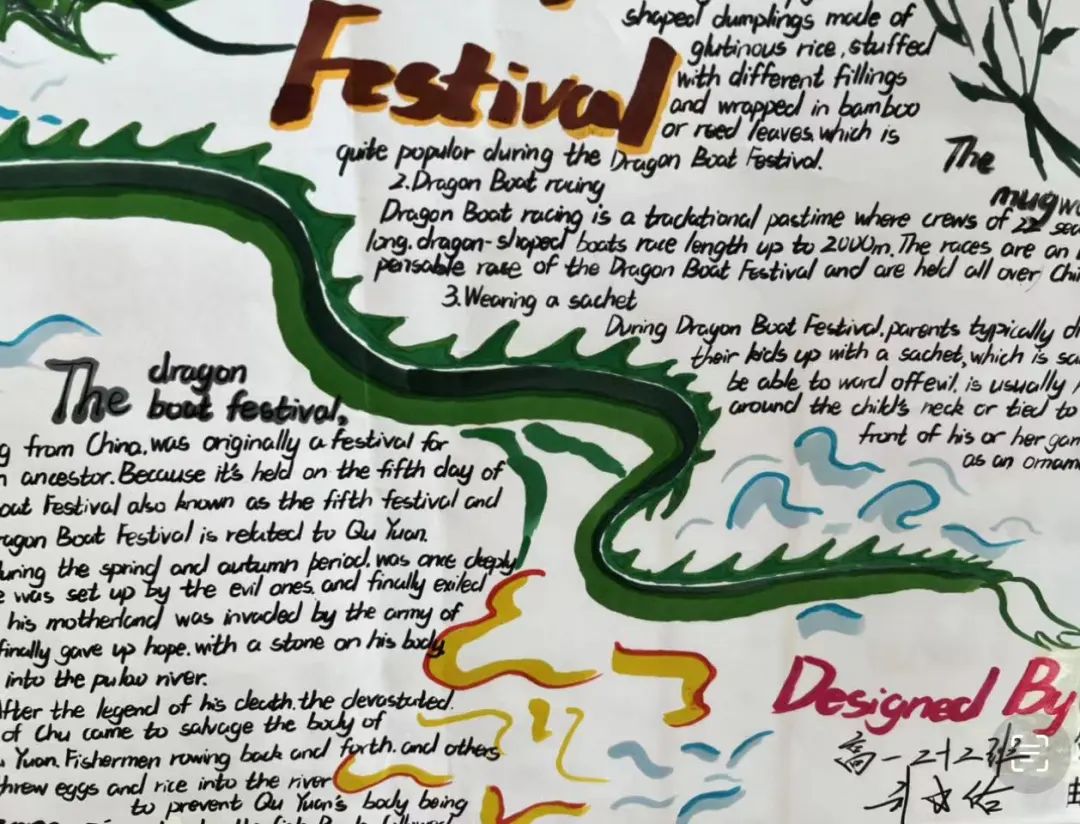 Festival
shaped dumplings made of
glutinous rice, stuffed
with different fillings
and wrapped in bamboo
or reed leaves, which is
quite popular during the Dragon Boat Festival.
2. Dragon Boat racing
Dragon Boat racing is a tracktional pastime where crews of 22
long, dragon-shaped boats race length up to 2000m. The races are an
pensable rase of the Dragon Boat Festival and are held all over
3. Wearing a sachet
During Dragon Boat Festival, parents typically
their kids up with a sachet, which is
be able to ward off evil. is usually
around the child's neck or tied to
front of his or her
as an
The
The dragon
boat festival,
from China, was originally a festival for
ancestor. Because it's held on the fifth day of
Festival also known as the fifth festival and
Boat Festival is related to Qu Yuan.
the spring and autumn period, was once deeply
was set up by the evil ones, and finally exiled
his motherland was invaded by the army of
finally gave up hope, with a stone on his body
into the river.
After the legend of his death, the devastated
of Chu came to salvage the body of
Yuan. Fishermen rowing back and forth, and others
threw eggs and rice into the river
to prevent Qu Yuan's body being
Designed By
高一二十二班